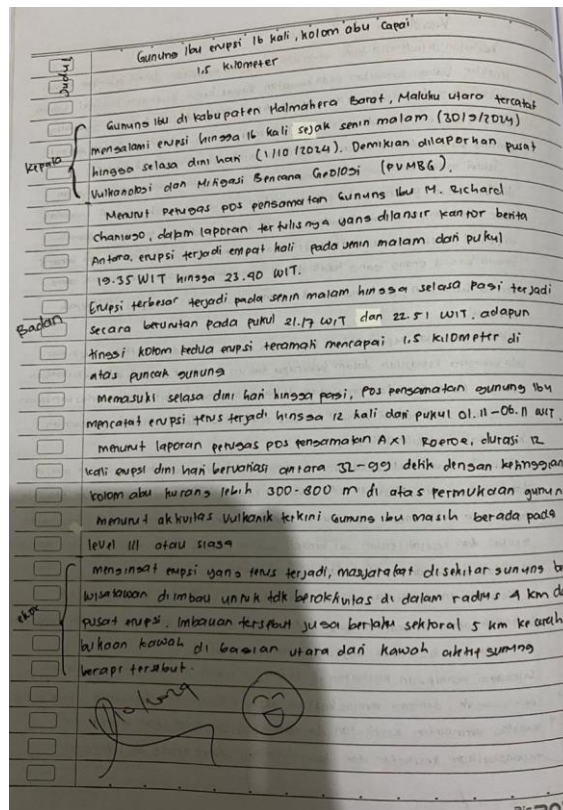 Judul
Gunung Ibu erupsi 16 kali, kolom abu capai
1,5 kilometer
Gunung Ibu di Kabupaten Halmahera Barat, Maluku utara tercatat
mengalami erupsi hingga 16 kali sejak senin malam (30/9/2024)
kepala
hingga selasa dini hari (1/10/2024). Demikian dilaporkan pusat
Vulkanologi dan Mitigasi Bencana Geologi (PVMBG).
Menurut petugas pos pengamatan Gunung Ibu M. Richard
dalam laporan tertulisnya yang dilansir kantor berita
Antara, erupsi terjadi empat kali pada malam dari pukul
19.35 WIT hingga 23.40 WIT.
Erupsi terbesar terjadi pada senin malam hingga selasa pagi terjadi
Badan
secara berurutan pada pukul 21.17 WIT dan 22.51 WIT. adapun
tinggi kolom kedua erupsi teramati mencapai 1,5 kilometer di
atas puncak gunung
memasuki selasa dini hari hingga pagi, pos pengamatan gunung Ibu
mencatat erupsi terus terjadi hingga 12 kali dari pukul 01.11-06.11
menurut laporan petugas pos pengamatan Axl Roeroe, durasi 12
kali erupsi dini hari bervariasi antara detik dengan ketinggian
kolom abu kurang lebih 300-800 m di atas permukaan gunun
menurut aktivitas vulkanik terkini Gunung Ibu masih berada pada
level III atau siaga
mengingat erupsi yang terus terjadi, masyarakat disekitar gunung
wisatawan diimbau untuk tdk beraktivitas di dalam radius 4 km
ekor
pusat erupsi. Imbauan tersebut juga berlaku sektoral 5 km ke arah
bukaan kawah di bagian utara dari kawah aktif gunung
berapi tersebut.